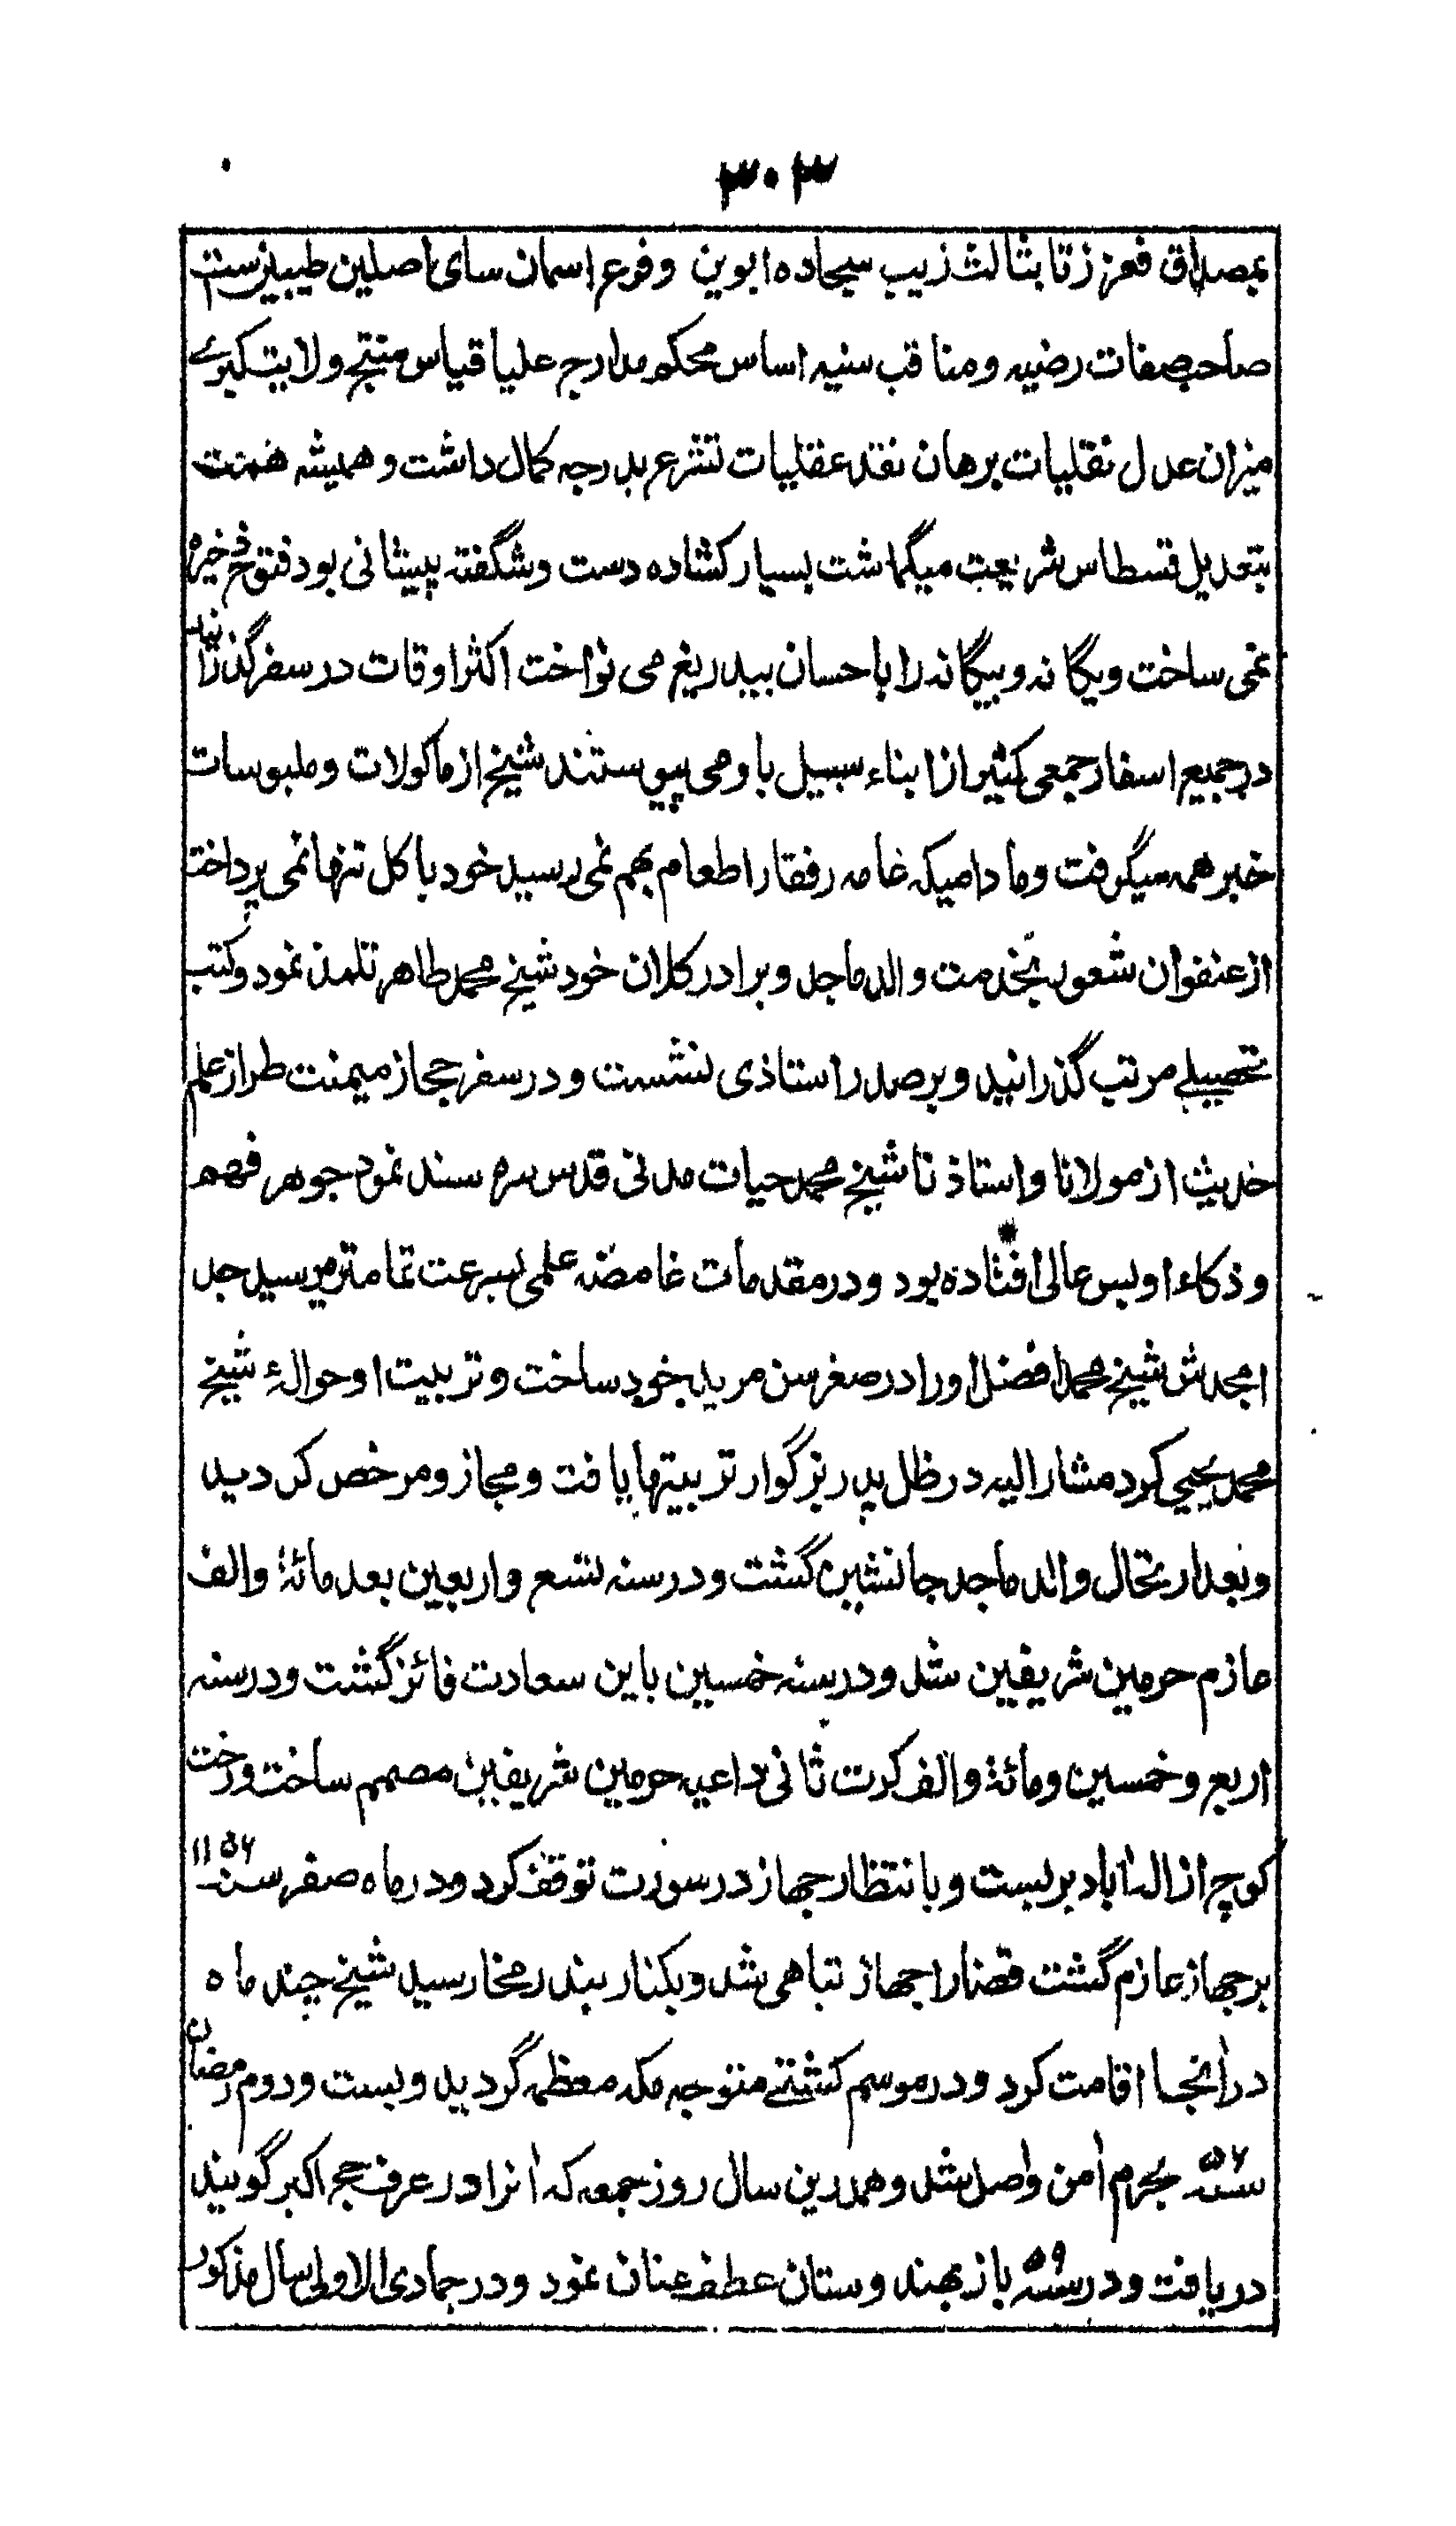 ۳۰۳
بمصداق فعززنا بثالث زیب سجاده ابوین وفرع اسمان سای اصلین طیبین ست
صاحب صفات رضیه ومناقب سنیه اساس محکم مدارج علیا قیاس منتج ولایت کبرے
میزان عدل نقلیات برهان نقد عقلیات تشرع بدرجه کمال داشت وهمیشه همت
بتعدیل قسطاس شریعت میگماشت بسیار کشاده دست وشگفته پیشانی بود فتوح ذخیره
نمی ساخت ویگانه وبیگانه را باحسان بیدریغ می نواخت اکثر اوقات در سفر گذرانید
در جمیع اسفار جمعی کثیر از ابناء سبیل باو می پیوستند شیخ از ماکولات وملبوسات
خبر همه میگرفت ومادامیکه عامه رفقا را طعام بهم نمی رسید خود باکل تنها نمی پرداخت
از عنفوان شعور بخدمت والد ماجد وبرادر کلان خود شیخ محمد طاهر تلمذ نمود وکتب
تحصیلے مرتب گذرانید وبر صدر استاذی نشست ودر سفر حجاز میمنت طراز علم
حدیث از مولانا واستاذنا شیخ محمد حیات مدنی قدس سره سند نمود جوهر فهم
وذکاء او بس عالی افتاده بود ودر مقدمات غامضه علمی بسرعت تمامتر میرسید جد
امجدش شیخ محمد افضل اورا در صغر سن مرید خود ساخت وتربیت او حوالهٔ شیخ
محمد یحیی کرد مشار الیه در ظل پدر بزرگوار تربیتها یافت ومجاز ومرخص گردید
وبعد ارتحال والد ماجد جانشین گشت ودر سنه تسع واربعین بعد مائة والف
عازم حرمین شریفین شد ودر سنه خمسین باین سعادت فائز گشت ودر سنه
اربع وخمسین ومائة والف کرت ثانی داعیه حرمین شریفین مصمم ساخت ورخت
کوچ از اله‌آباد بربست وبا نتظار جهاز در سورت توقف کرد ودر ماه صفر سنه ۱۱۵۶
بر جهاز عازم گشت قضارا جهاز تباهی شد وبکنار بندر مخا رسید شیخ چند ماه
در آنجا اقامت کرد ودر موسم کشتے متوجه مکه معظمه گردید وبست ودوم رمضان
سنه ۵۶ بحرم آمن واصل شد وهمدرین سال روز جمعه که آنرا در عرف حج اکبر گویند
دریافت ودر سنه ۵۹ باز بهندوستان عطف عنان نمود ودر جمادی الاولی سال مذکور